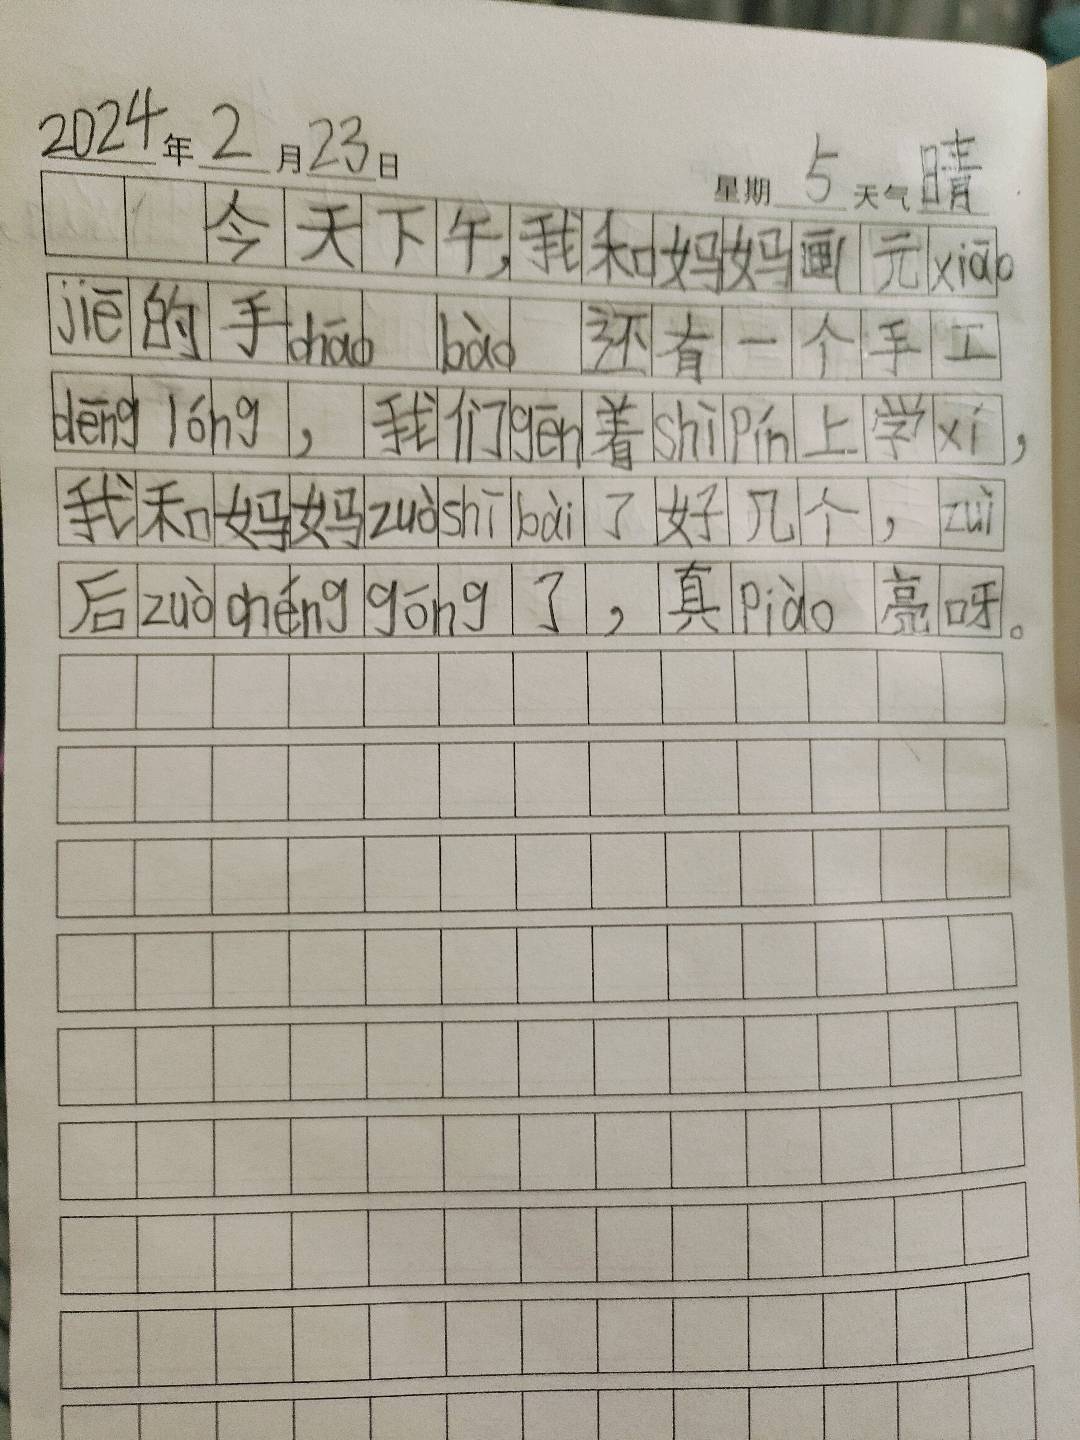 2024年2月23日 星期5天气晴
今天下午,我和妈妈画元xiāo
jiē的手chāo bào 还有一个手工
dēnglóng,我们gēn着shìpín上学xí,
我和妈妈zuòshībài了好几个,zuì
后zuòchénggōng了,真piào亮呀。